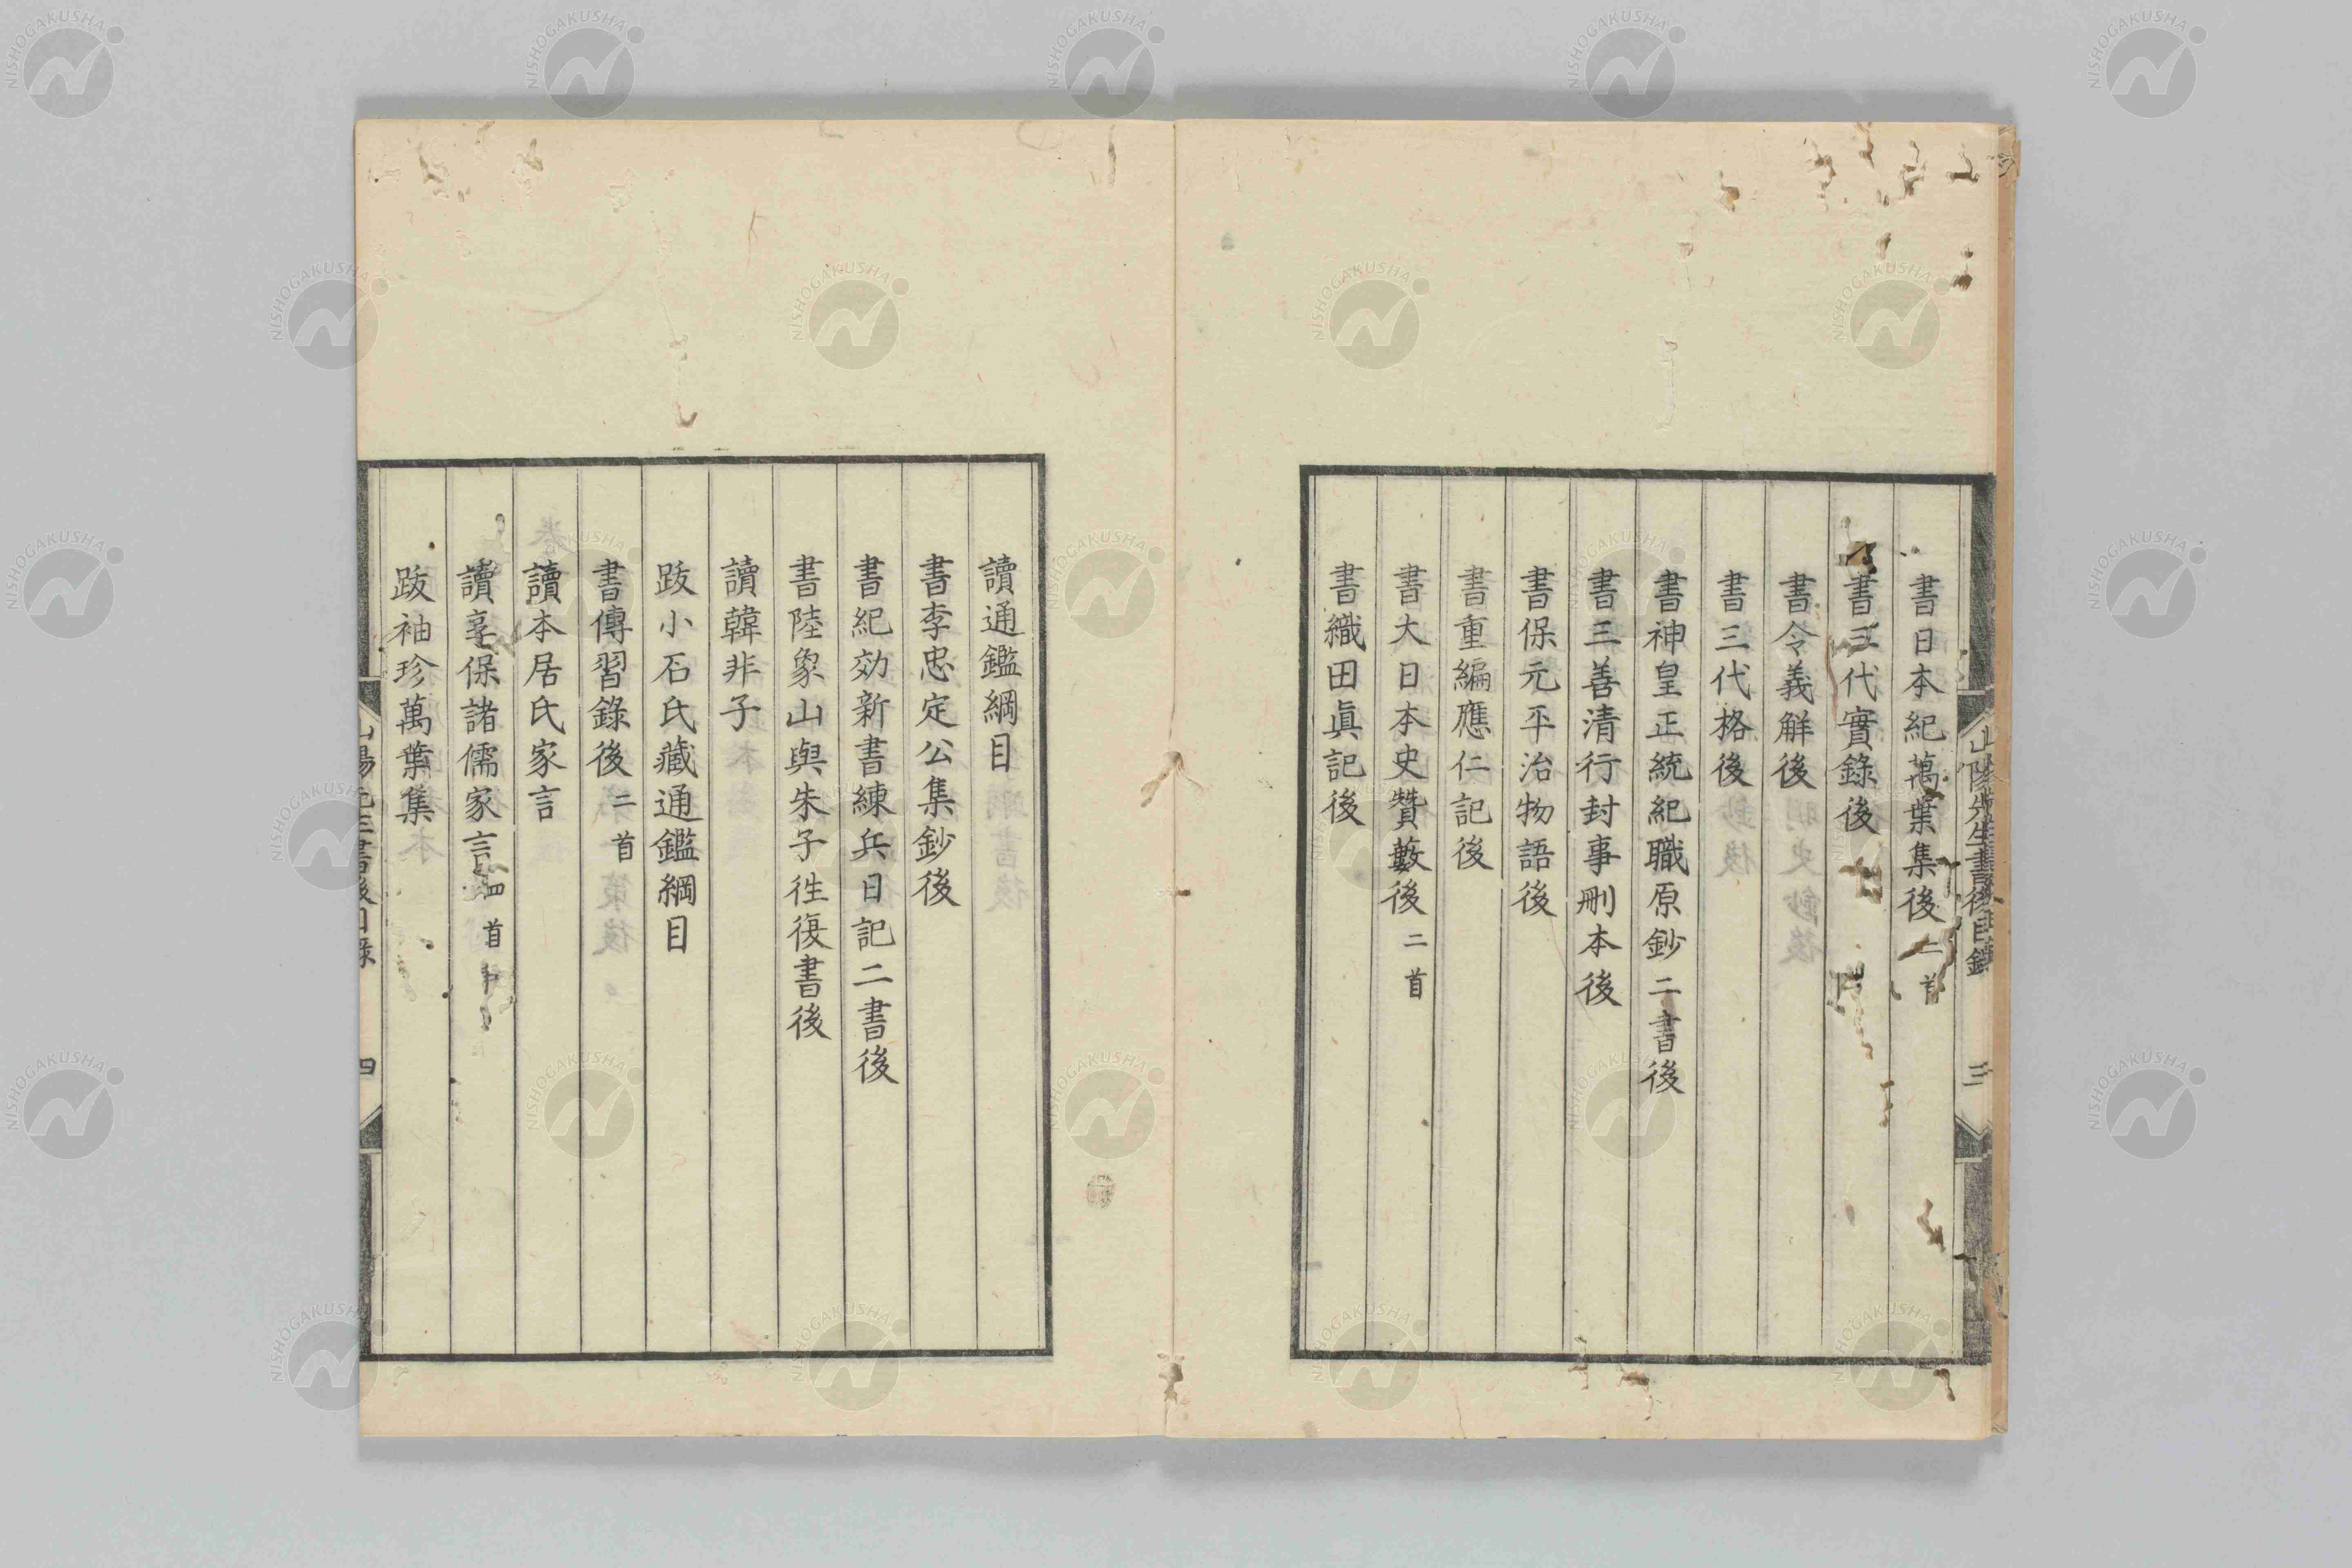 書日本紀萬葉集後 二首
書三代實錄後
書令義解後
書三代格後
書神皇正統紀職原鈔二書後
書三善清行封事刪本後
書保元平治物語後
書重編應仁記後
書大日本史贊藪後 二首
書織田眞記後
山陽先生書後目錄 三
讀通鑑綱目
書李忠定公集鈔後
書紀効新書練兵日記二書後
書陸象山與朱子徃復書後
讀韓非子
跋小石氏藏通鑑綱目
書傳習錄後 二首
讀本居氏家言
讀享保諸儒家言 四首
跋袖珍萬葉集
山陽先生書後目錄 四
NISHOGAKUSHA